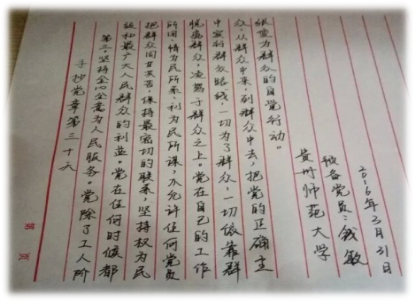 手抄党章第三十天
第三,坚持全心全意为人民服务。党除了工人阶
级和最广大人民群众的利益。党在任何时候都
把群众同甘共苦,保持最密切的联系,坚持权为民
所用,情为民所系,利为民所谋,不允许任何党员
脱离群众,凌驾于群众之上。党在自己的工作
中实行群众路线,一切为了群众,一切依靠群
众,从群众中来,到群众中去,把党的正确主
张变为群众的自觉行动。
贵州师范大学
预备党员:钱敏
2016年3月31日
第 页